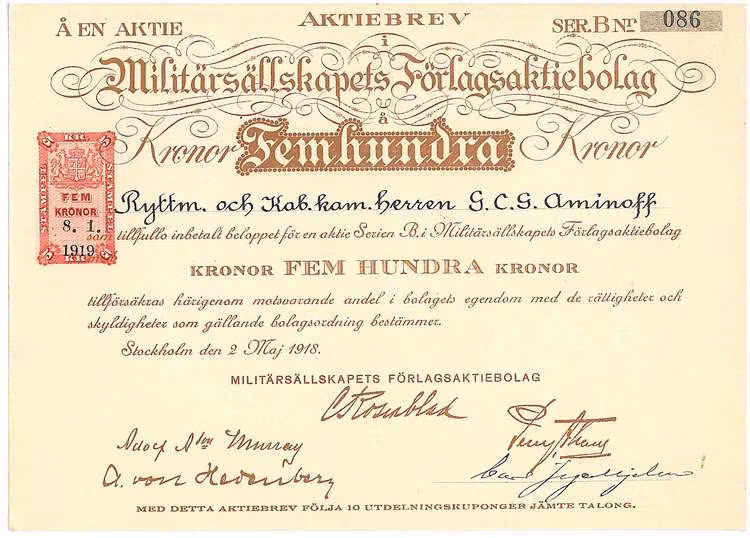 AKTIEBREV
Å EN AKTIE
SER. B Nr 086
i
Militärsällskapets Förlagsaktiebolag
å
Kronor Femhundra Kronor
5 KR 5
FEM
KRONOR
8. 1.
1919
5 KR 5
Ryttm. och Kab.kam.herren G.C.G. Aminoff
som tillfullo inbetalt beloppet för en aktie Serien B. i Militärsällskapets Förlagsaktiebolag
KRONOR FEM HUNDRA KRONOR
tillförsäkras härigenom motsvarande andel i bolagets egendom med de rättigheter och
skyldigheter som gällande bolagsordning bestämmer.
Stockholm den 2 Maj 1918.
MILITÄRSÄLLSKAPETS FÖRLAGSAKTIEBOLAG
C Rosenblad
Adolf Murray
A. von Hedenberg
Carl
MED DETTA AKTIEBREV FÖLJA 10 UTDELNINGSKUPONGER JÄMTE TALONG.